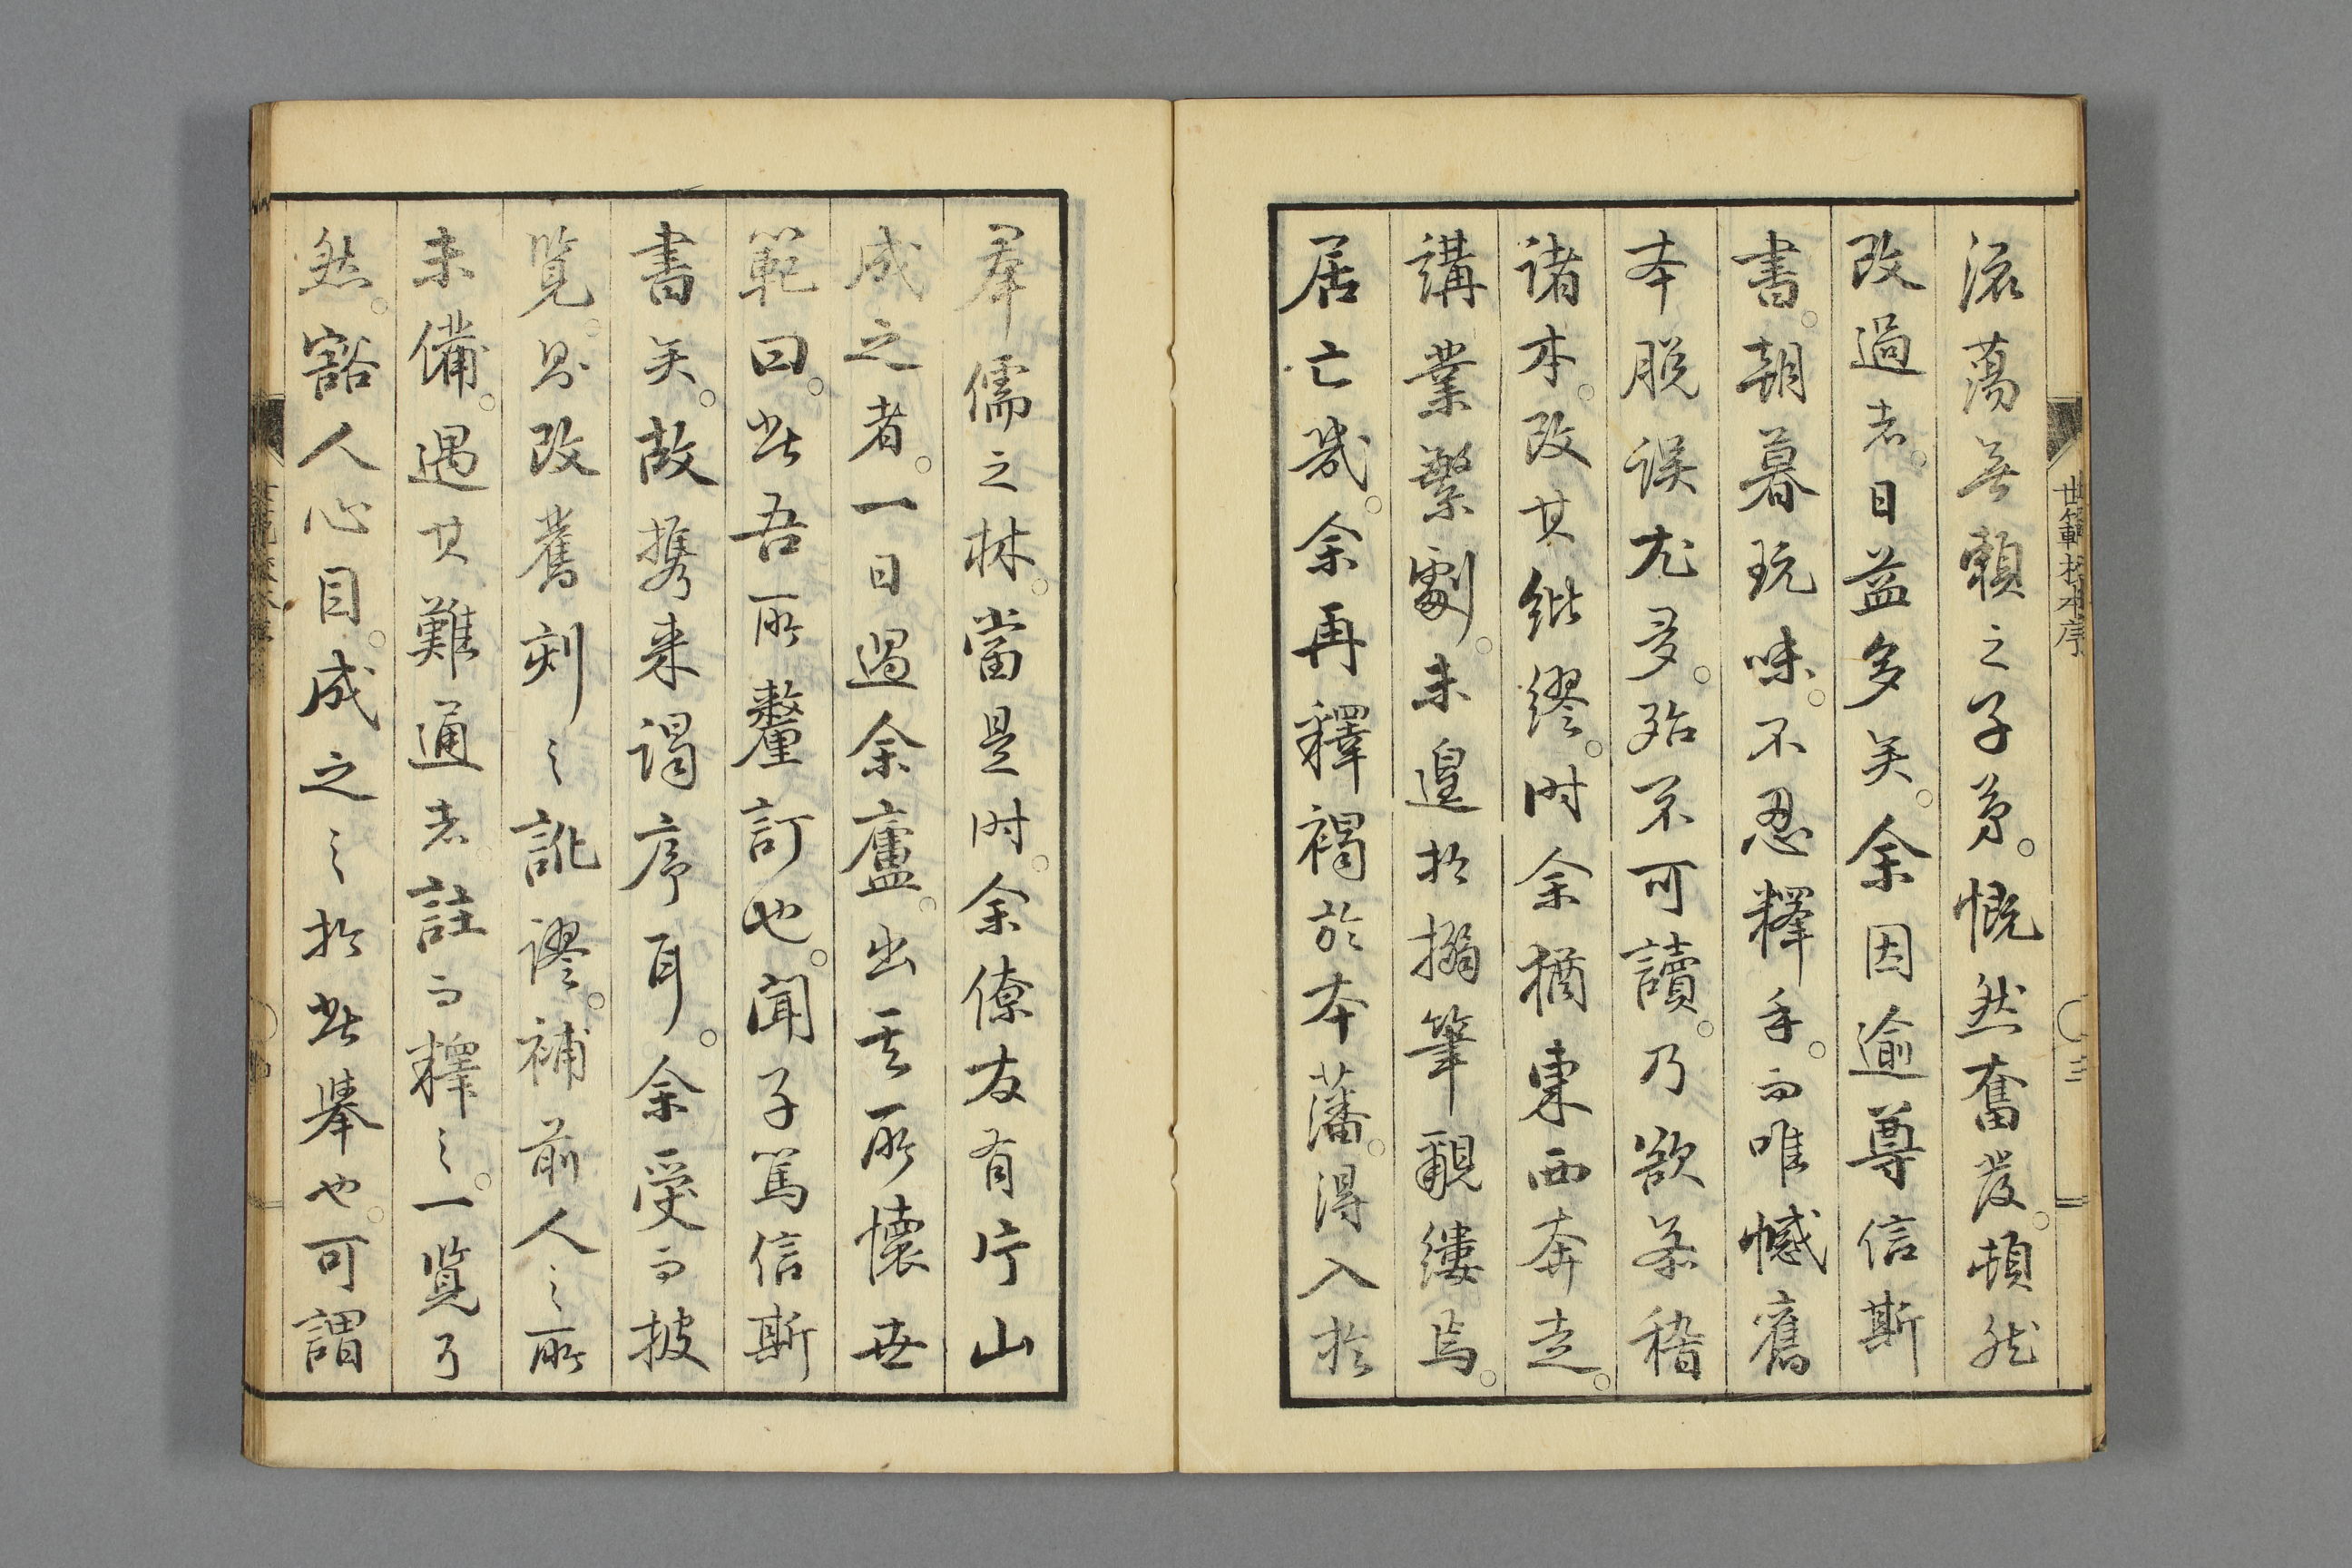 流蕩無頼之子弟。慨然奮發。頓然
改過者。日益多矣。余因逾尊信斯
書。朝暮玩味。不忍釋手。而唯憾舊
本脱誤尤多。殆不可讀。乃欲参稽
諸本。改其紕繆。时余猶東西奔走。
講業繁劇。未遑於搦筆覼縷焉。
居亡幾。余再釋褐於本藩。得入於
世範校本序
三
羣儒之林。當是时。余僚友有片山
成之者。一日過余廬。出其所懷世
範曰。此吾所釐訂也。聞子篤信斯
書矣。故携来謁序耳。余受而披
覧。則改舊刻之訛謬。補前人之所
未備。遇其難通者。註而釋之。一覧了
然。豁人心目。成之之於此舉也。可謂